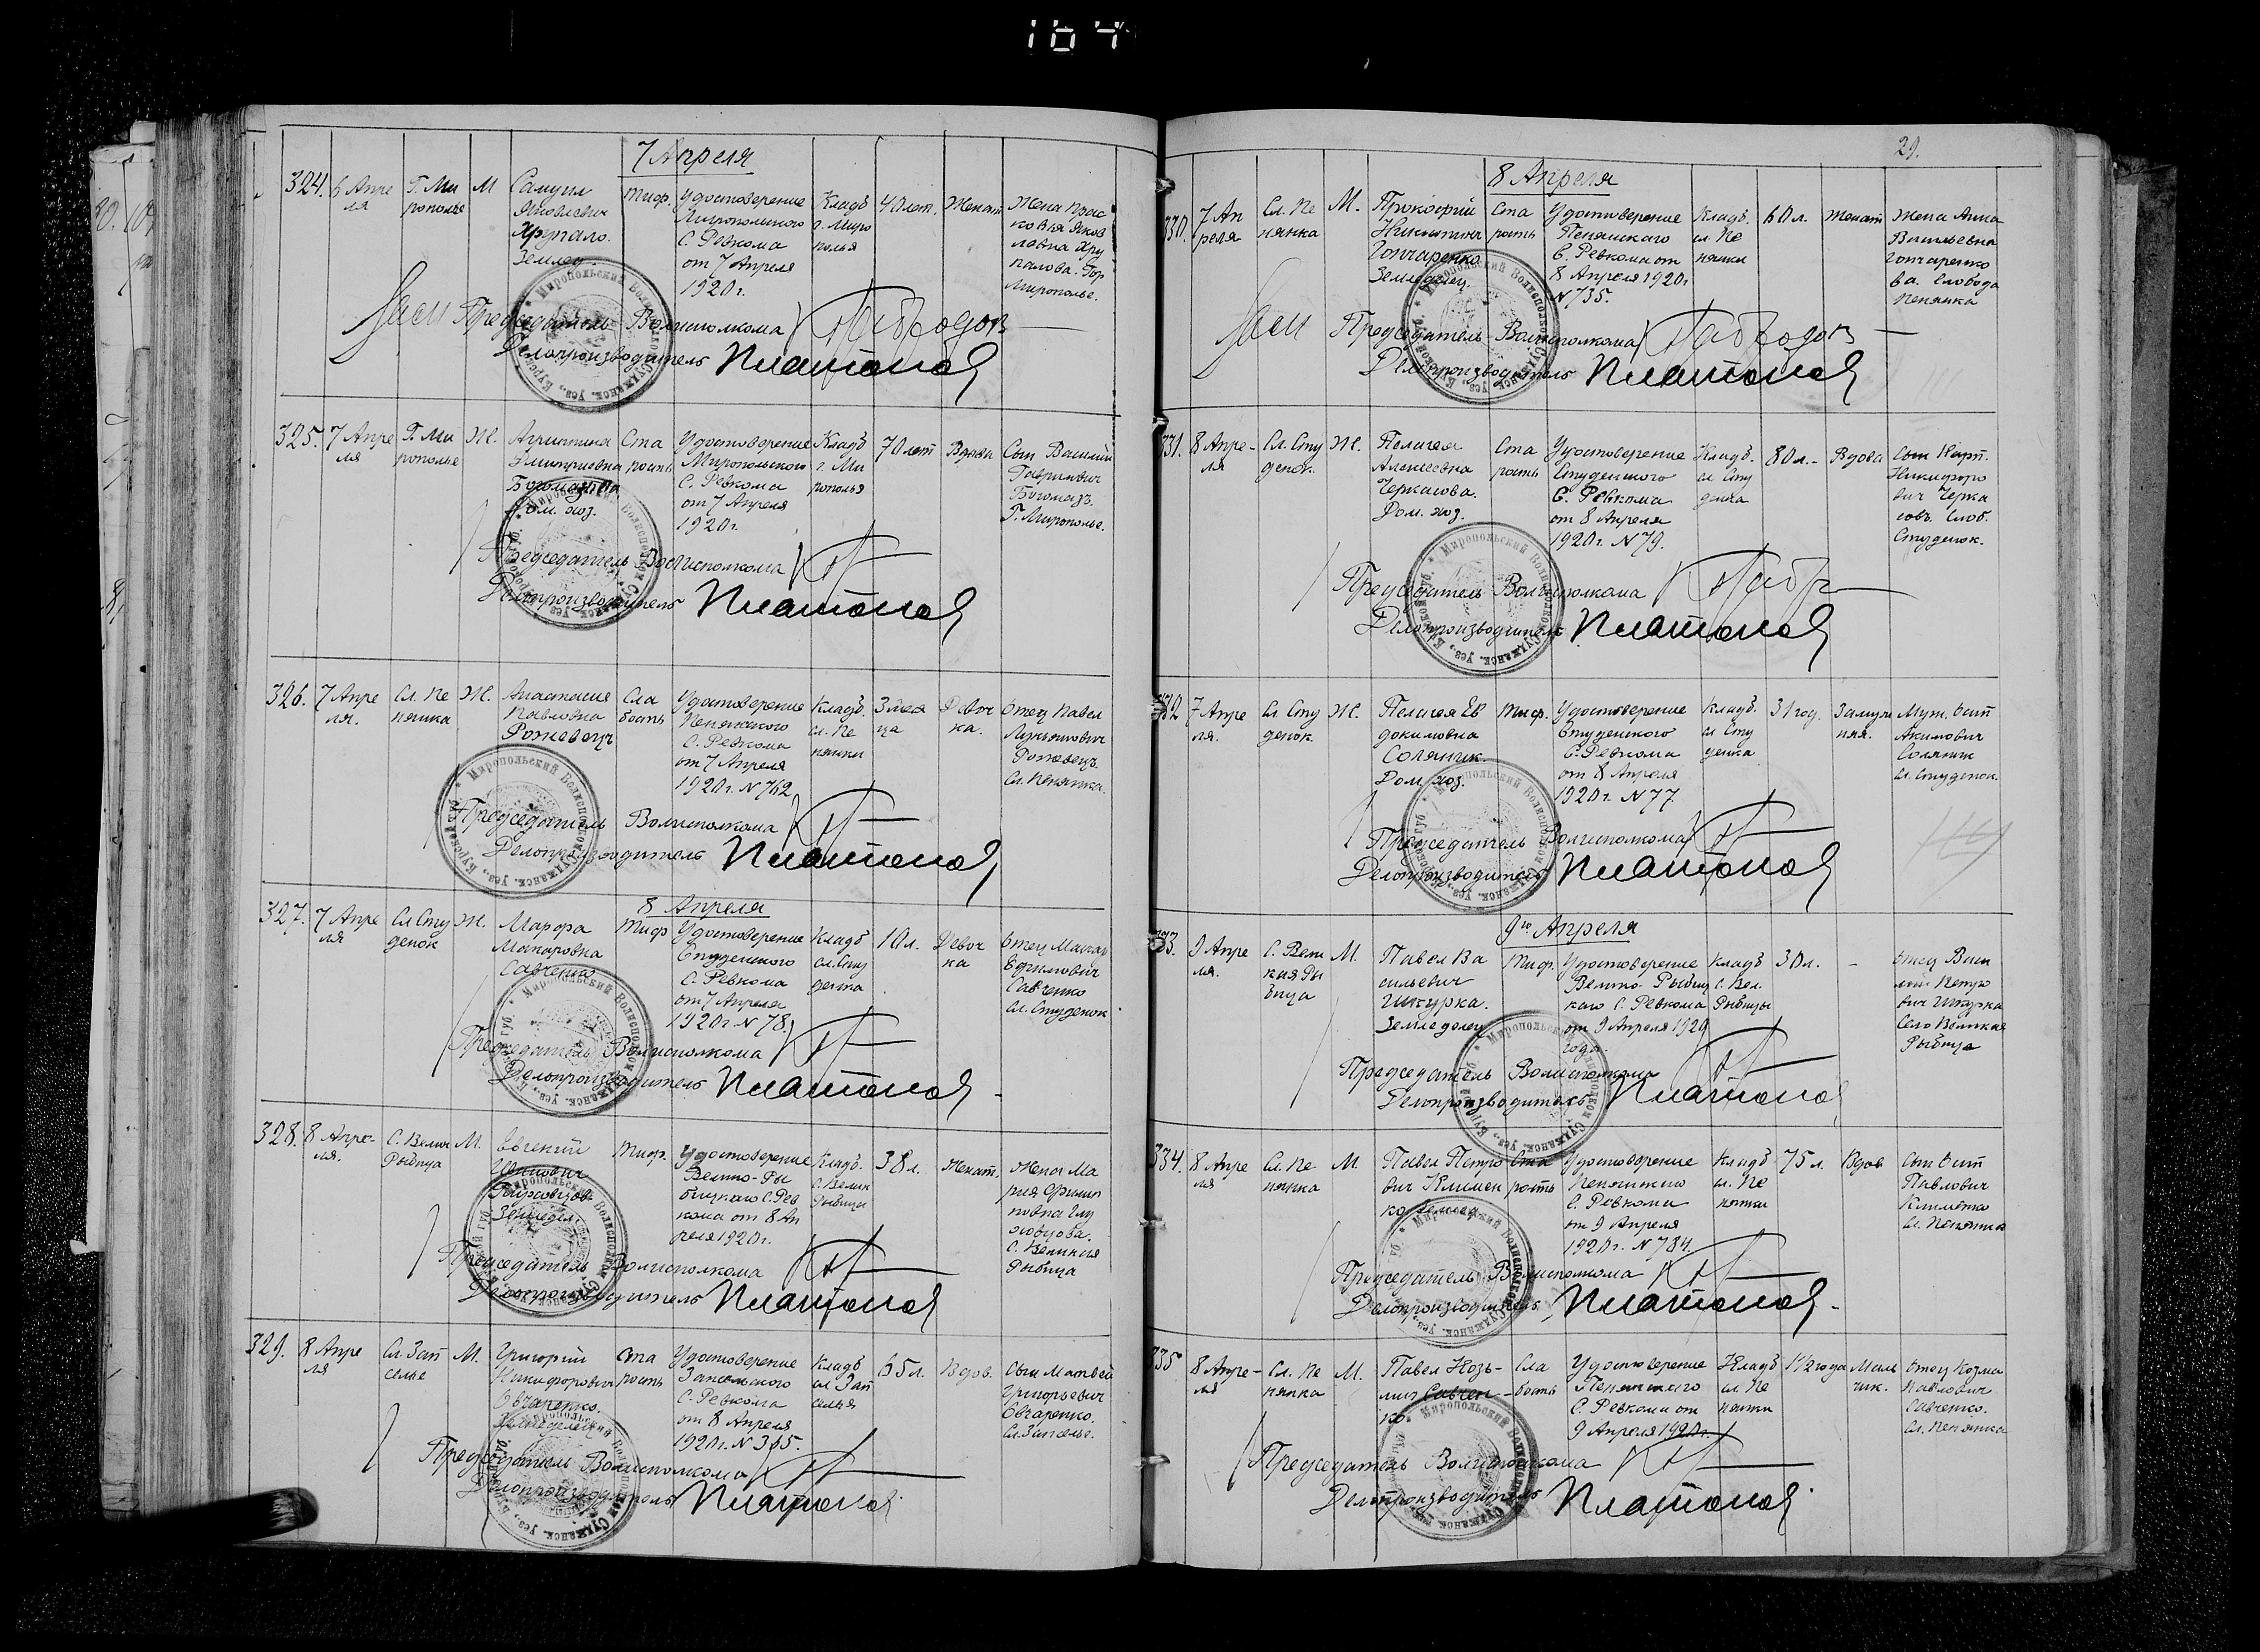 164
7 Апреля
324. 6 Апре
ля
Г. Ми
рополье
М
Самуил
Яковлевич
Хрупало.
Землед.
Тиф.
Удостоверение
Миропольского
С. Ревкома
от 7 Апреля
1920 г.
Кладб
г. Миро
полья
40 лет.
Женат
Жена Прас
ковья Яков
левна Хру
палова. Гор
Мирополье.
Председатель Волисполкома
Делопроизводитель Платонов
325. 7 Апре
ля
Г. Ми
рополье
Ж.
Агриппина
Дмитриевна
Богомазова
Дом. хоз.
Ста
рость
Удостоверение
Миропольского
С. Ревкома
от 7 Апреля
1920 г.
Кладб
г. Ми
рополья
70 лет
Вдова
Сын Василий
Гаврилович
Богомаз.
Г. Мирополье.
Председатель Волисполкома
Делопроизводитель Платонов
326. 7 Апре
ля.
Сл. Пе
нянка
Ж.
Анастасия
Павловна
Рожевец
Сла
бость
Удостоверение
Пенянского
С. Ревкома
от 7 Апреля
1920 г. № 762
Кладб.
сл. Пе
нянки
3 меся
ца
Девоч
ка.
Отец Павел
Лукьянович
Рожевец
Сл. Пенянка.
Председатель Волисполкома
Делопроизводитель Платонов
8 Апреля
327. 7 Апре
ля
Сл. Сту
денок
Ж.
Марфа
Макаровна
Савченко
Тиф
Удостоверение
Студенского
С. Ревкома
от 7 Апреля
1920 г. № 78.
Кладб
сл. Сту
денка
10 л.
Девоч
ка
Отец Макар
Ефимович
Савченко
Сл. Студенок
Председатель Волисполкома
Делопроизводитель Платонов
328. 8 Апре-
ля.
С. Велик
Рыбица
М.
Евгений
Землед.
Тиф.
Удостоверение
Велико-Ры
бицкаго С. Рев
кома от 8 Ап
реля 1920 г.
Кладб.
С. Велик
Рыбицы
38 л.
Женат.
Жена Ма
рия Филип
повна Глу
ховцова.
С. Великая
Рыбица
Председатель Волисполкома
Делопроизводитель Платонов
329. 8 Апре
ля
Сл. Зап
селье
М.
Григорий
Никифорович
Овчаренко.
Земледелец
Ста
рость
Удостоверение
Запсельского
С. Ревкома
от 8 Апреля
1920 г. № 365.
Кладб
сл. Зап
селья
65 л.
Вдов.
Сын Матвей
Григорьевич
Овчаренко.
Сл. Запселье.
Председатель Волисполкома
Делопроизводитель Платонов
29.
8 Апреля
330. 7 Ап
реля
Сл. Пе
нянка
М.
Прокофий
Никитич
Гончаренко
Земледелец.
Ста
рость
Удостоверение
Пенянского
С. Ревкома от
8 Апреля 1920 г
№ 735.
Кладб.
сл. Пе
нянки
60 л.
Женат
Жена Анна
Васильевна
Гончаренко
ва. Слобода
Пенянка
Председатель Волисполкома
Делопроизводитель Платонов
331. 8 Апре-
ля
Сл. Сту
денок.
Ж.
Пелагея
Алексеевна
Черкасова.
Дом. хоз.
Ста
рость
Удостоверение
Студенского
С. Ревкома
от 8 Апреля
1920 г. № 79.
Кладб.
сл Сту
денка
80 л.-
Вдова
Сын Карп.
Никифоро
вич Черка
сов. Слоб.
Студенок.
Председатель Волисполкома
Делопроизводитель Платонов
332 7 Апре
ля.
Сл Сту
денок.
Ж.
Пелагея Ев
докимовна
Соляник.
Дом. хоз.
Тиф.
Удостоверение
Студенского
С. Ревкома
от 8 Апреля
1920 г. № 77
Кладб.
сл Сту
денка
31 год.
Замуж
няя.
Муж. Осип
Акимович
Соляник
Сл. Студенок.
Председатель Волисполкома
Делопроизводитель Платонов
9го Апреля
333. 9 Апре
ля.
С. Вели
кая Ры
бица
М.
Павел Ва
сильевич
Шкурка.
Земледелец
Тиф.
Удостоверение
Велико-Рыбиц
каго С. Ревкома
от 9 Апреля 1920
года.
Кладб
с. Вел.
Рыбицы
30 л.
-
Отец Васи
лий Петро
вич Шкурка
Село Великая
Рыбица
Председатель Волисполкома
Делопроизводитель Платонов
334. 8 Апре
ля
Сл. Пе
нянка
М.
Павел Петро
вич Клименко
Ста
рость
Удостоверение
Пенянского
С. Ревкома
от 9 Апреля
1920 г. № 784.
Кладб
сл. Пе
нянки
75 л.
Вдов
Сын Осип
Павлович
Клименко
Сл. Пенянка
Председатель Волисполкома
Делопроизводитель Платонов
335 8 Апре-
ля
Сл. Пе
нянка
М.
Павел Козь-
мич Савчен-
ко
Сла
бость
Удостоверение
Пенянского
С. Ревкома от
9 Апреля 1920 г.
Кладб
сл. Пе
нянки
1½ года
Маль
чик.
Отец Козма
Павлович
Савченко.
Сл. Пенянка
Председатель Волисполкома
Делопроизводитель Платонов